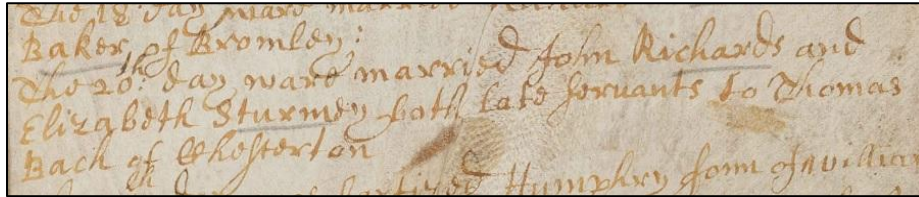 The 18 day ware married
Baker of Bromley:
The 20th: day ware married John Richards and
Elizabeth Sturmey both late servants to Thomas
Bach of Chesterton
th baptized Humphry sonn of Willia